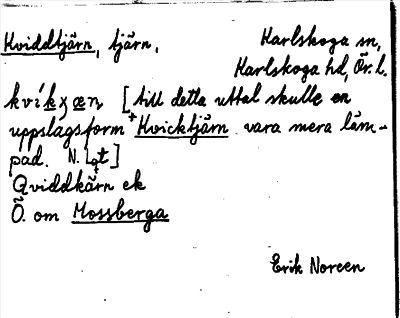 Kviddtjärn, tjärn, Karlskoga sn,
Karlskoga hd, Ör. l.
[till detta uttal skulle en
uppslagsform +Kvicktjärn vara mera läm-
pad. N. Lqt]
Qviddkärn ek
Ö. om Mossberga
Erik Noreen